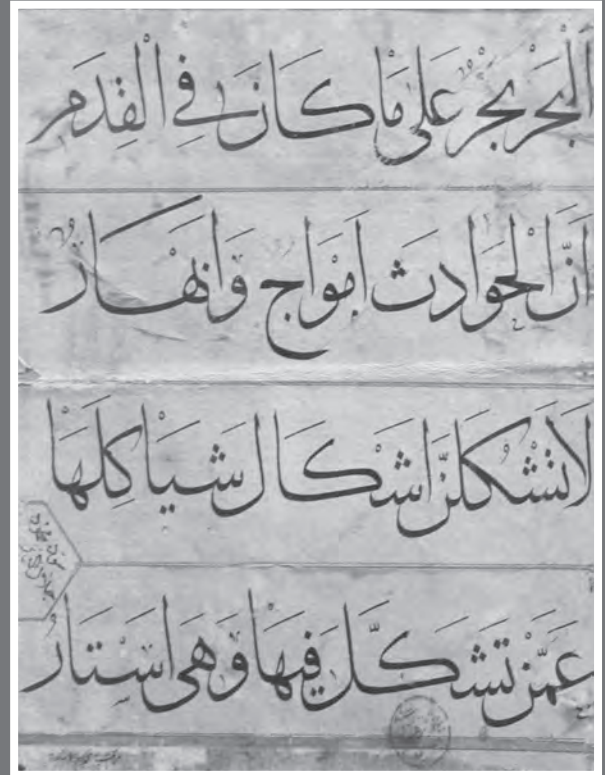 اَلْبَحْرُ بَحْرٌ عَلٰى مَا كَانَ فِي الْقِدَمِ
اَنَّ الْحَوَادِثَ اَمْوَاجٌ وَاَنْهَارٌ
لَا تَشْكُلَنَّ اَشْكَالٌ شَيَاكِلَهَا
عَمَّنْ تَشَكَّلَ فِيهَا وَهِيَ اَسْتَارٌ